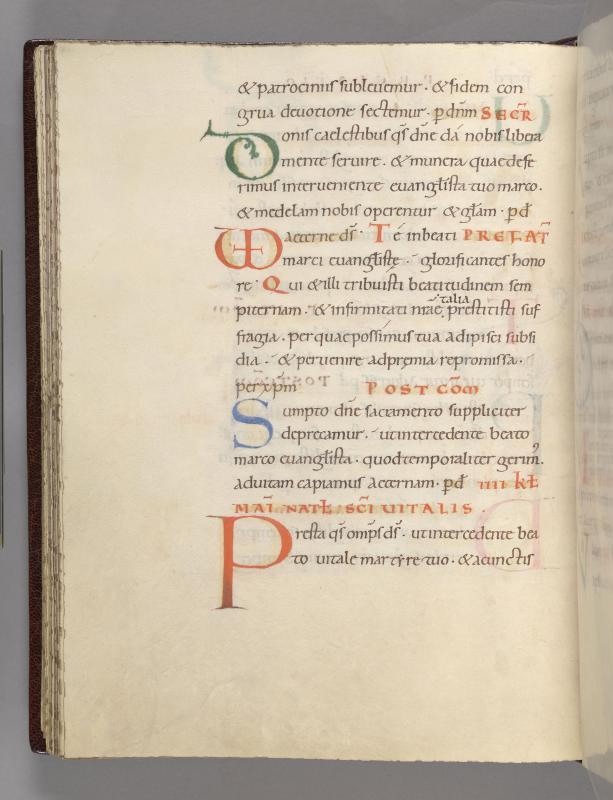 & patrociniis subleuemur · & fidem con
grua deuotione sectemur · p dnm SECR̄
Donis caelestibus qs dne da nobis libera
mente seruire . & munera quae defe
rimus interueniente euanglista tuo marco .
& medelam nobis operentur & glam · pd
VD aeterne ds · Te in beati PREFAT̄
marci euangliste · glorificantes hono
re · Qui & illi tribuisti beatitudinem sem
piternam . & infirmitati nrae talia prestitisti suf
fragia . per quae possimus tua adipisci subsi
dia . & peruenire ad pręmia repromissa .
per xpm POST COM
Sumpto dne sacramento suppliciter
deprecamur . ut intercedente beato
marco euanglista . quod temporaliter gerim9 .
ad uitam capiamus aeternam · pd IIII KL
MAI NAT SCI UITALIS .
Presta qs omps ds . ut intercedente bea
to uitale martyre tuo . & a cunctis